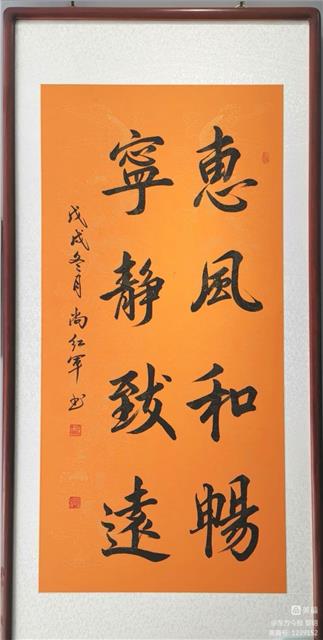 惠風和暢
寧靜致遠
戊戌冬月 尚红軍 书
美篇
@东方今报 郭明
美篇号: 1229152